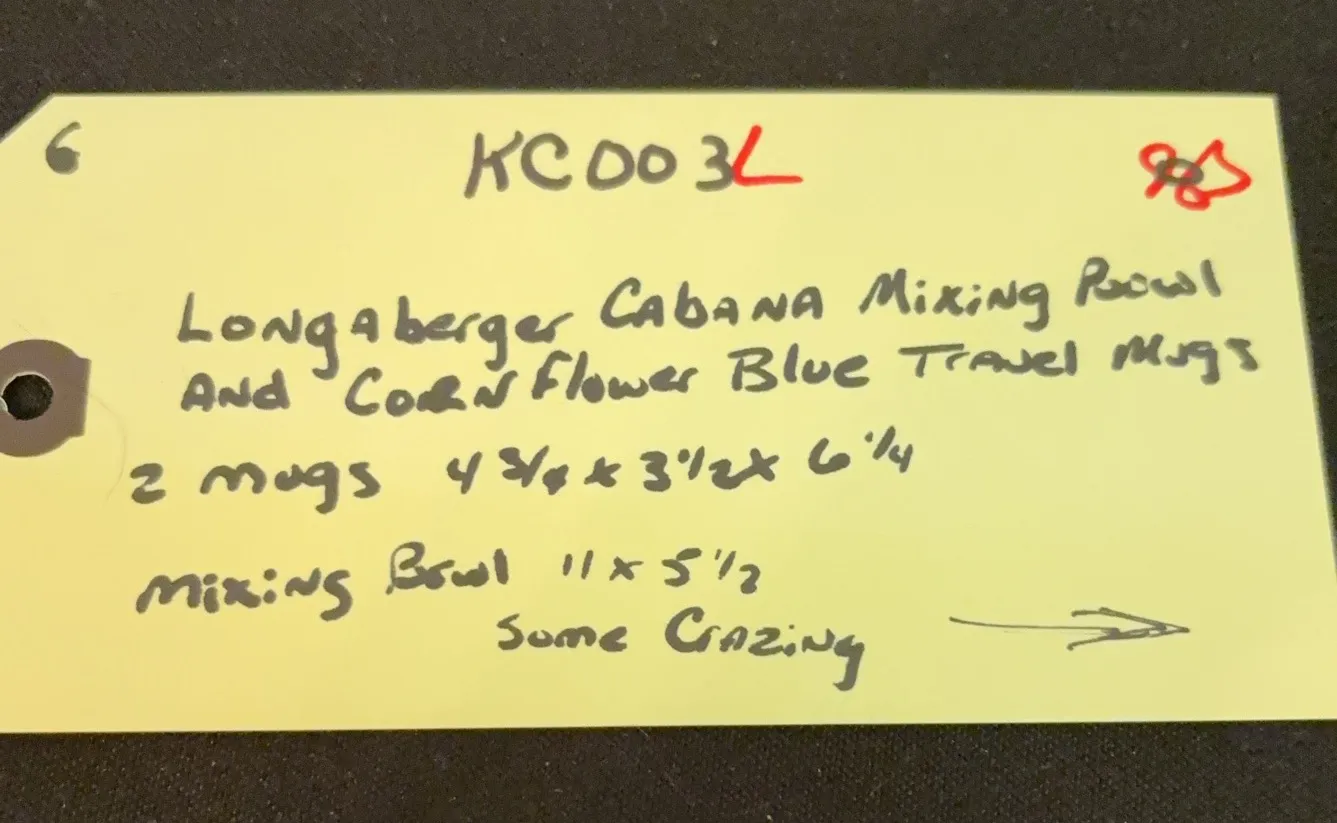 6 KC003L
Longaberger Cabana Mixing Bowl
And Cornflower Blue Travel Mugs
2 mugs 4 3/4 x 3 1/2 x 6 1/4
Mixing Bowl 11 x 5 1/2
Some Crazing